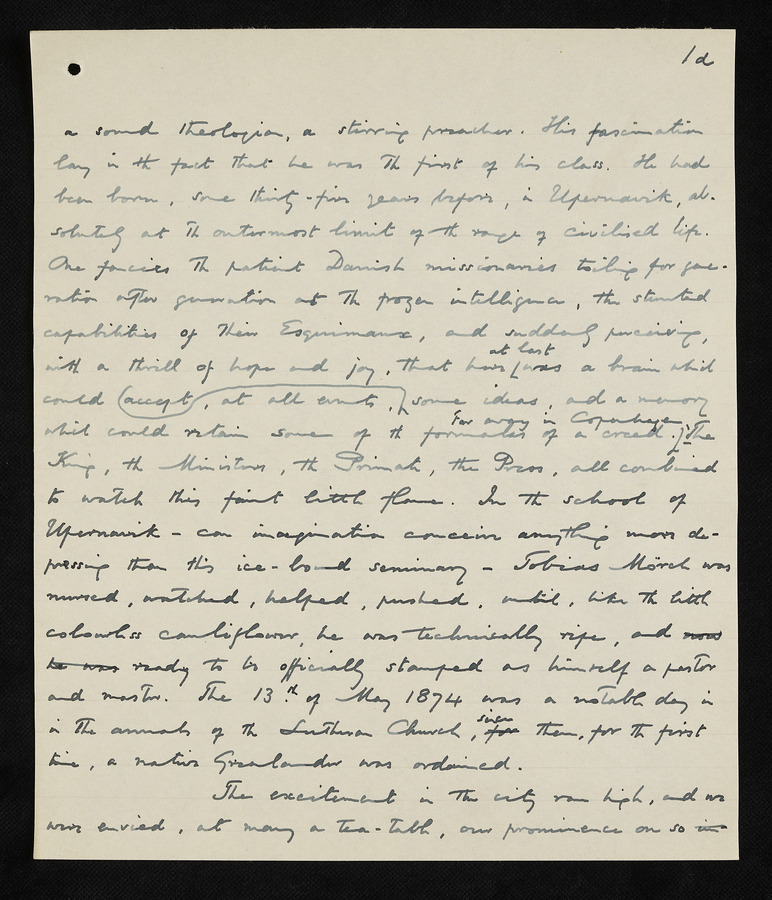 1d
a sound theologian, a stirring preacher. His fascination
lay in the fact that he was the first of his class. He had
been born, some thirty-five years before, in Upernavik, ab-
solutely at the outermost limit of the range of civilised life.
One fancies the patient Danish missionaries toiling for gene-
ration after generation at the frozen intelligence, the stunted
capabilities of their Esquimaux, and suddenly perceiving,
with a thrill of hope and joy, that here at last was a brain which
could accept, at all events, some ideas, and a memory
which could retain some of the formulas of a creed. Far away in Copenhagen, The
King, the Ministers, the Primate, the Press, all combined
to watch this faint little flame. In the school of
Upernavik – can imagination conceive anything more de-
pressing than this ice-bound seminary – Tobias Mörch was
nursed, watched, helped, pushed, until, like the little
colourless cauliflower, he was technically ripe, and now
he was ready to be officially stamped as himself a pastor
and master. The 13th of May 1874 was a notable day in
in the annals of the Lutheran Church, since for then, for the first
time, a native Greenlander was ordained.
The excitement in the city ran high, and we
were envied, at many a tea-table, our prominence on so in